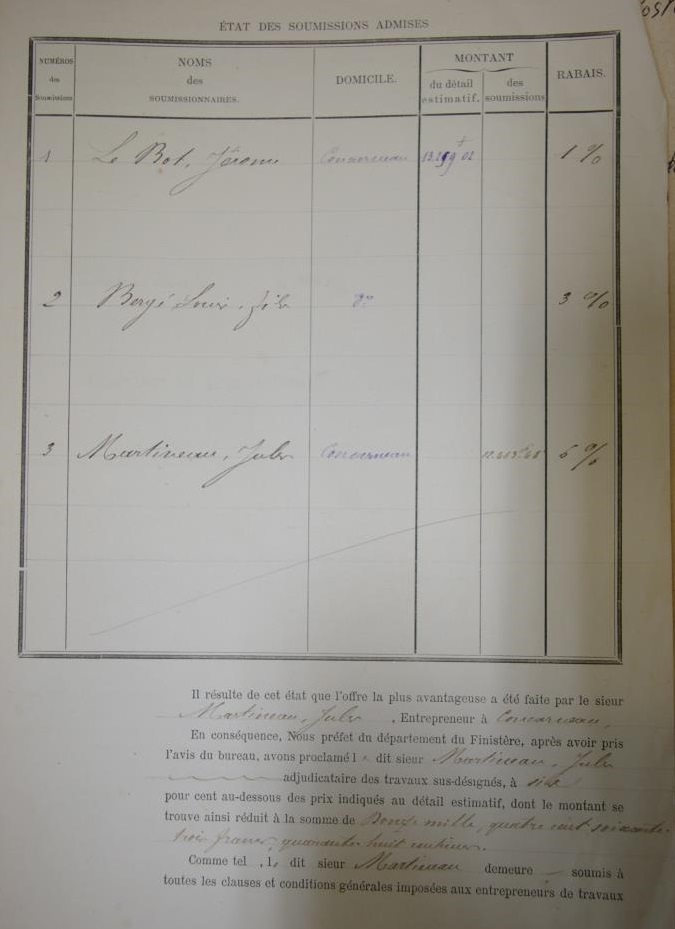 ÉTAT DES SOUMISSIONS ADMISES
NUMÉROS des Soumissions
NOMS des SOUMISSIONNAIRES.
DOMICILE.
MONTANT
du détail estimatif.
des soumissions
RABAIS.
1 Le Bot, Jérome Concarneau 1 %
2 Bergé Louis, fils do 3 %
3 Martineau, Jules Concarneau 6 %
Il résulte de cet état que l'offre la plus avantageuse a été faite par le sieur
Martineau, Jules, Entrepreneur à Concarneau.
En conséquence, Nous préfet du département du Finistère, après avoir pris
l'avis du bureau, avons proclamé le dit sieur Martineau, Jules
adjudicataire des travaux sus-désignés, à six
pour cent au-dessous des prix indiqués au détail estimatif, dont le montant se
trouve ainsi réduit à la somme de Douze mille, quatre cent soixante
trois francs, quarante huit centimes.
Comme tel, le dit sieur Martineau demeure soumis à
toutes les clauses et conditions générales imposées aux entrepreneurs de travaux